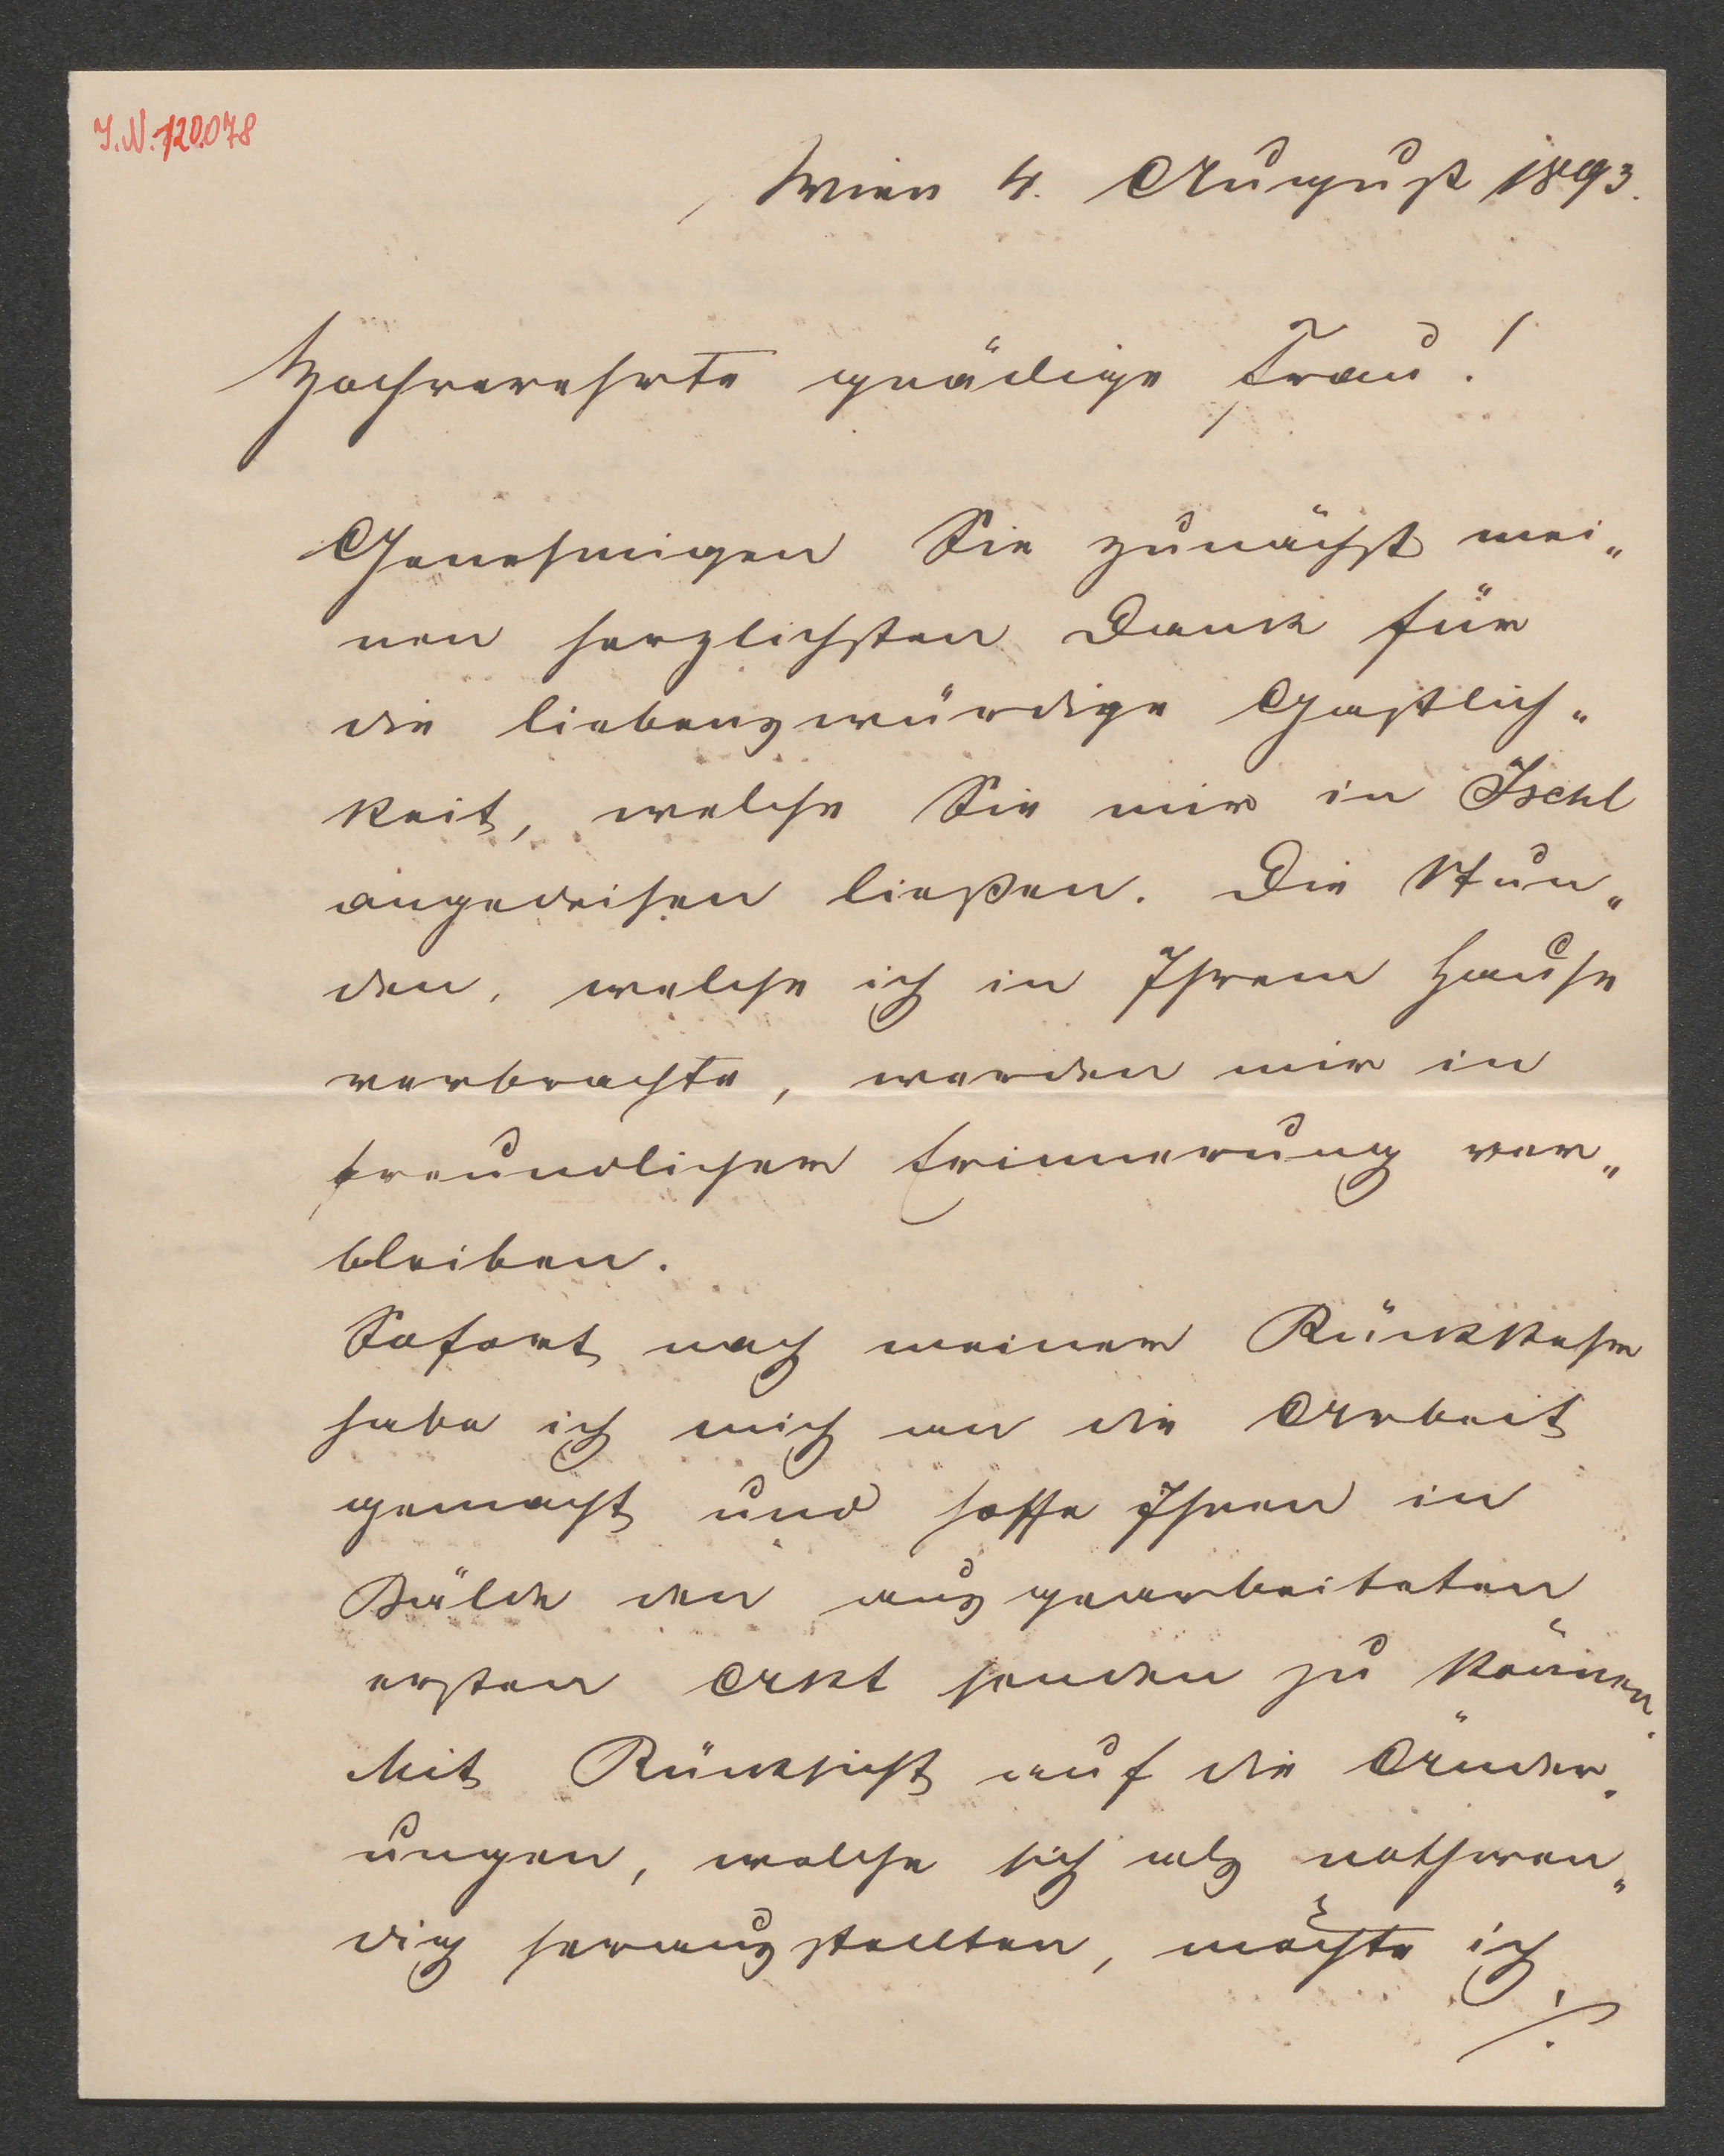 I.N. 120.078
Wien 4. August 1893.
Hochverehrte gnädige Frau!
Genehmigen Sie zunächst mei„
nen herzlichsten Dank für
die liebenswürdige Gastlich„
keit, welche Sie mir in Ischl
angedeihen ließen. Die Stun„
den, welche ich in Ihrem Hause
verbrachte, werden mir in
freundlicher Erinnerung ver„
bleiben.
Sofort nach meiner Rückkehr
habe ich mich an die Arbeit
gemacht und hoffe Ihnen in
Bälde den ausgearbeiteten
ersten Akt senden zu können.
Mit Rücksicht auf die Änder„
ungen, welche sich als nothwen„
dig herausstellten, möchte ich
./.